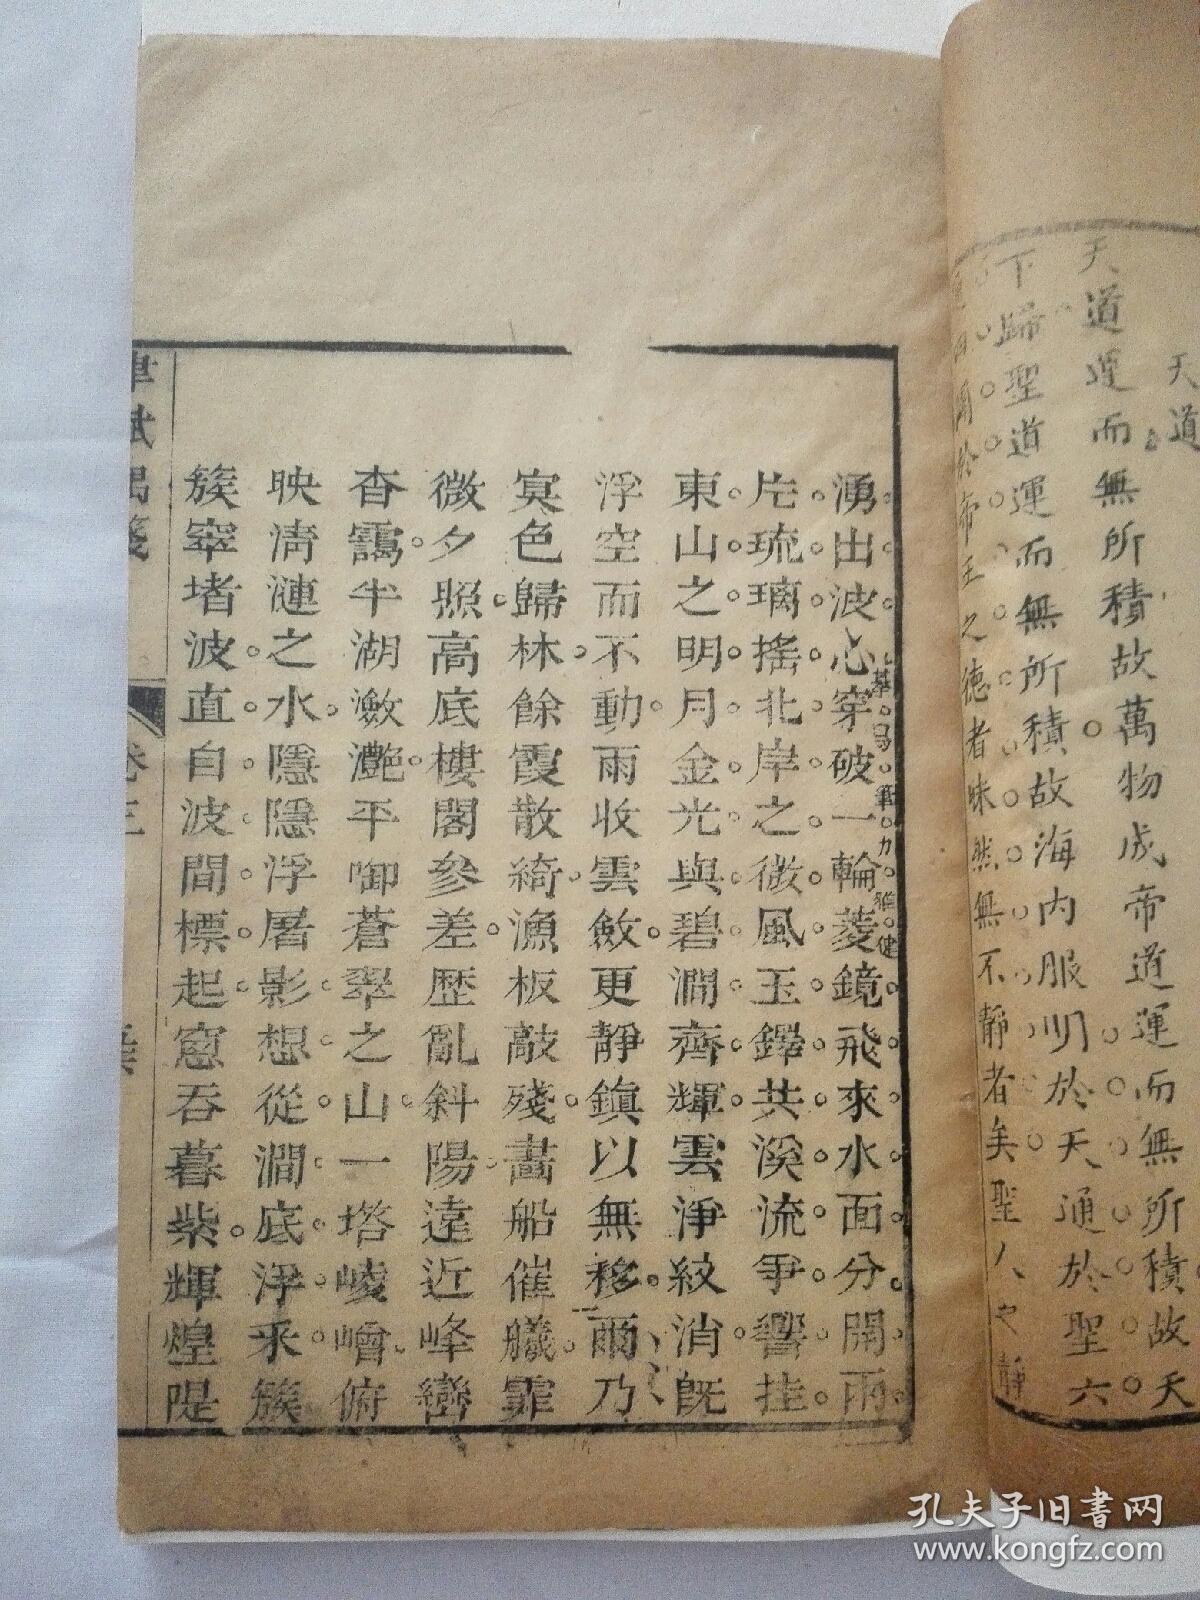 天道
天道運而無所積故萬物成帝道運而無所積故天
下歸聖道運而無所積故海內服明於天通於聖六
通四闢於帝王之德者昧然無不靜者矣聖人之靜
湧出波心穿破一輪菱鏡飛來水面分開兩
摹寫筆力雄健
片琉璃搖北岸之微風玉鐸共溪流爭響挂
東山之明月金光與碧澗齊輝雲淨紋消既
浮空而不動雨收雲斂更靜鎮以無移爾乃
冥色歸林餘霞散綺漁板敲殘畵船催艤霏
微夕照高底樓閣參差歷亂斜陽遠近峰巒
杳靄半湖瀲灔平啣蒼翠之山一塔崚嶒俯
映清漣之水隱隱浮屠影想從澗底浮來簇
簇窣堵波直自波間標起窓吞暮紫輝煌隄
律賦偶箋
卷三
孔夫子旧书网
www.kongfz.com